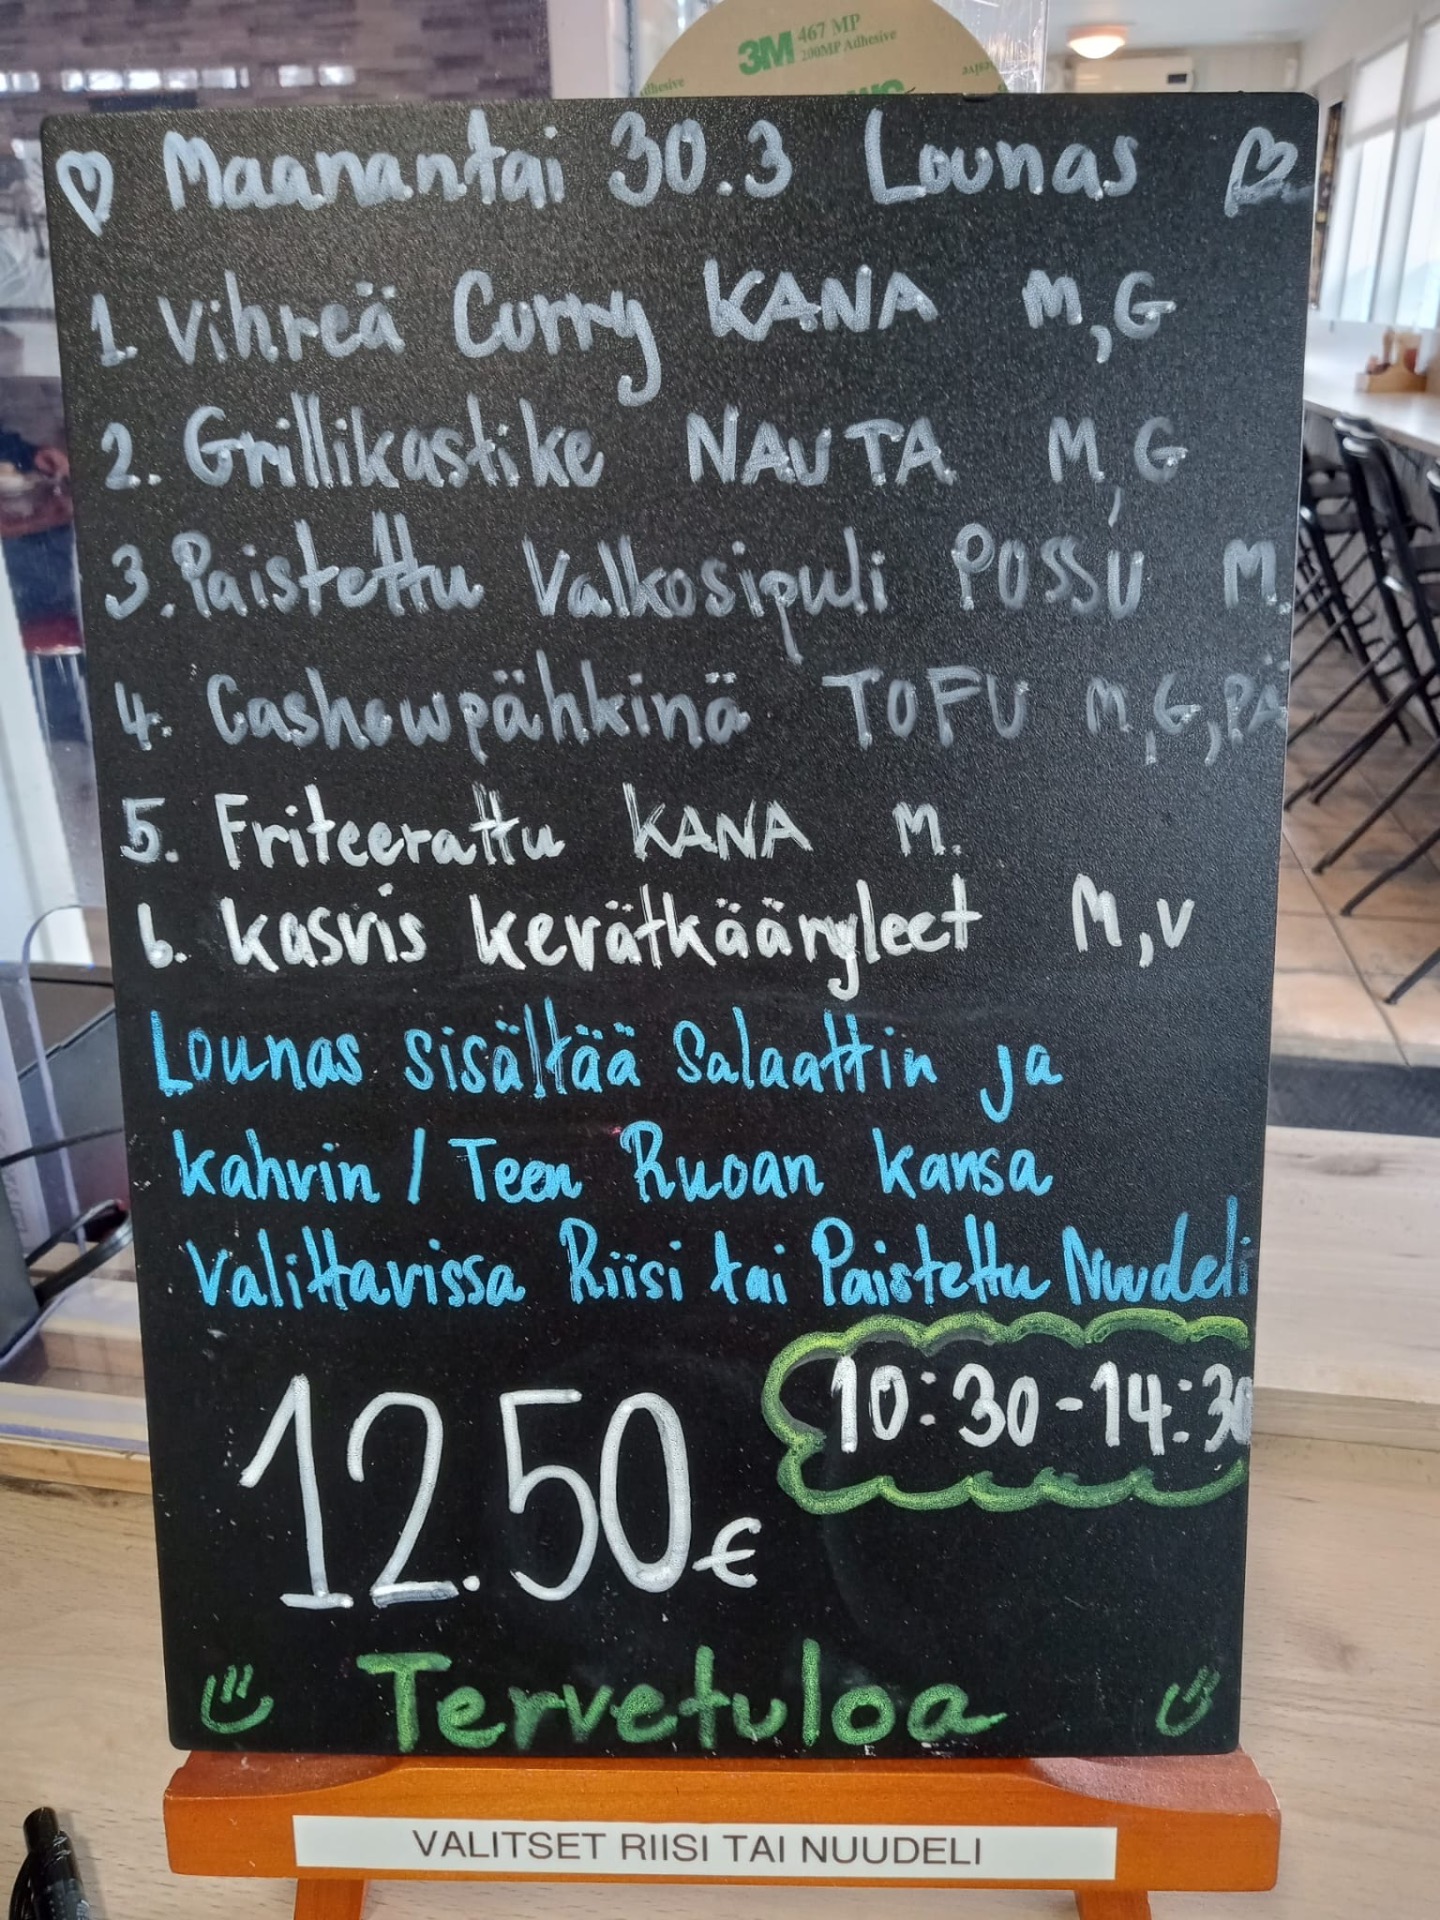 3M 467 MP
200MP Adhesive
Adhesive
Maanantai 30.3 Lounas
1. Vihreä Curry KANA M,G
2. Grillikastike NAUTA M,G
3. Paistettu Valkosipuli POSSU M.
4. Cashewpähkinä TOFU M,G,PÄ
5. Friteerattu KANA M.
6. Kasvis kevätkääryleet M,V
Lounas sisältää Salaattin ja
kahvin / Teen Ruoan kansa
Valittavissa Riisi tai Paistettu Nuudeli
10:30-14:30
12.50€
Tervetuloa
VALITSET RIISI TAI NUUDELI